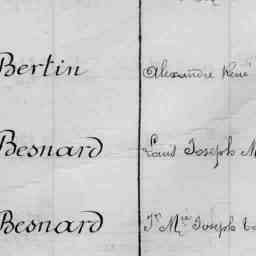 Bertin Alexandre René
Besnard Louis Joseph M
Besnard Jn Mie Joseph